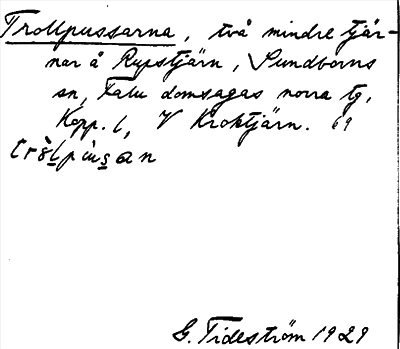 Trollpussarna, två mindre tjär-
nar å Rypstjärn, Sundborns
sn, Falu domsagas norra tg,
Kopp. l, V Kroktjärn. 69
tròlpùsan
G. Tideström 1929